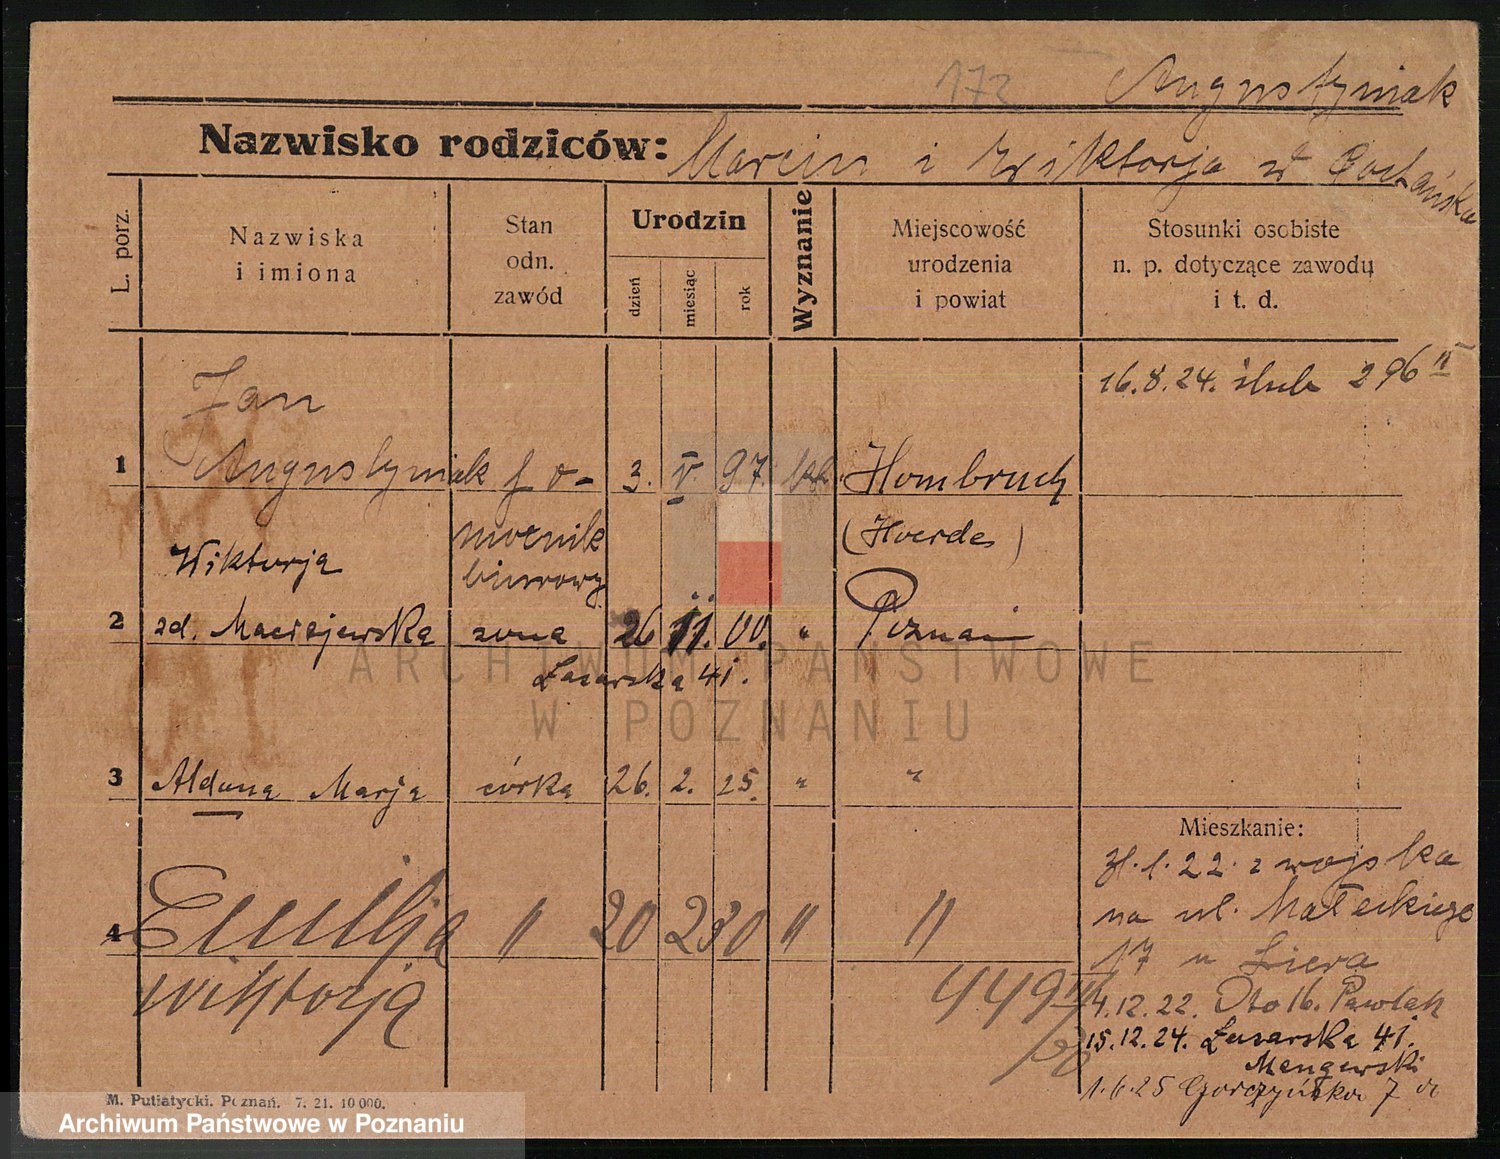 172 Augustyniak
Nazwisko rodziców: Marcin i Wiktorja z
L. porz.
Nazwiska
i imiona
Stan
odn.
zawód
Urodzin
dzień
miesiąc
rok
Wyznanie
Miejscowość
urodzenia
i powiat
Stosunki osobiste
n. p. dotyczące zawodu
i t. d.
Jan
16.8.24. ślub 296 II
1 Augustyniak 3. V. 97. kat. Hombruch
(Hoerde)
biurowy
Wiktorja
2 zd. Maciejewska żona 26 11. 00. " Poznań
Łazarska 41.
3 Aldona Marja córka 26. 2. 25. " "
Mieszkanie:
1.22. z wojska
na ul. Małeckiego
4 Emilja " 20 2 30 " "
17 u Liera
Wiktorja
449
4.12.22. Otto 16. Pawlak
15.12.24. Łazarska 41.
/30
Mengewski
1.6.25 Górczyńska 7
M. Putiatycki. Poznań. 7. 21. 10 000.
ARCHIWUM PAŃSTWOWE
W POZNANIU
Archiwum Państwowe w Poznaniu